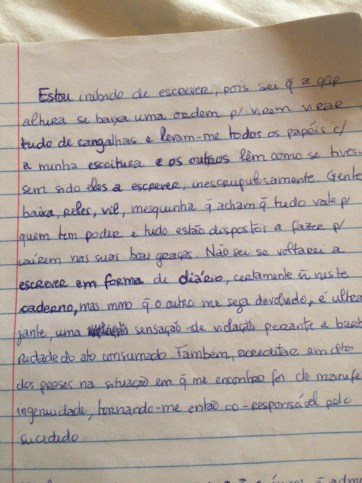 Estou inibido de escrever, pois sei q̃ a qqr
altura se baixa uma ordem p/ virem virar
tudo de cangalhas e levam-me todos os papéis c/
a minha escritura e os outros lêm como se tives-
sem sido eles a escrever, inescrupulosamente. Gente
baixa, reles, vil, mesquinha q̃ acham q̃ tudo vale p/
quem tem poder e tudo estão dispostos a fazer p/
caírem nas suas boas graças. Não sei se voltarei a
escrever em forma de diário, certamente ñ neste
caderno, mas mmo q̃ o outro me seja devolvido, é ultra
jante, uma sensação de violação perante a
do ato consumado. Também, acreditar em
dos presos na situação em q̃ me encontro foi de manifes
ingenuidade, tornando-me então co-responsável pelo
sucedido.